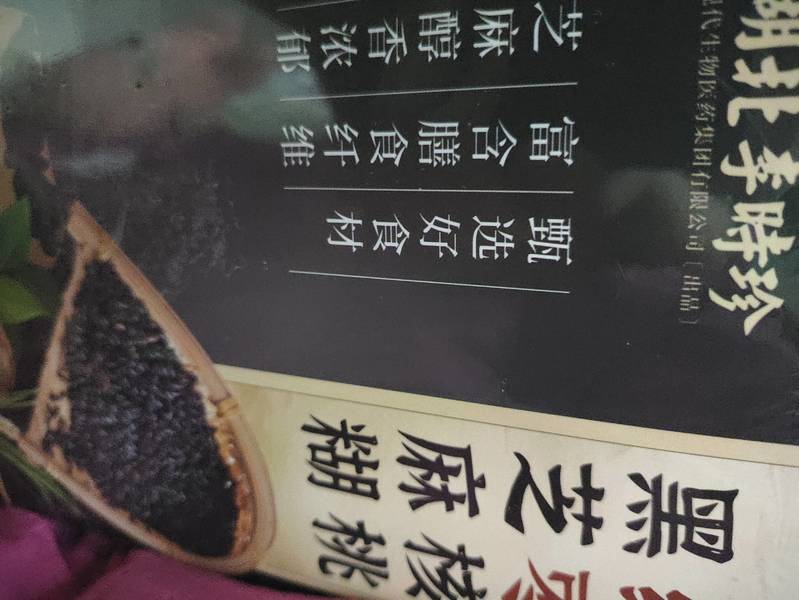 湖北李時珍
代生物医药集团有限公司〔出品〕
核桃
黑芝麻糊
甄选好食材
富含膳食纤维
芝麻醇香浓郁